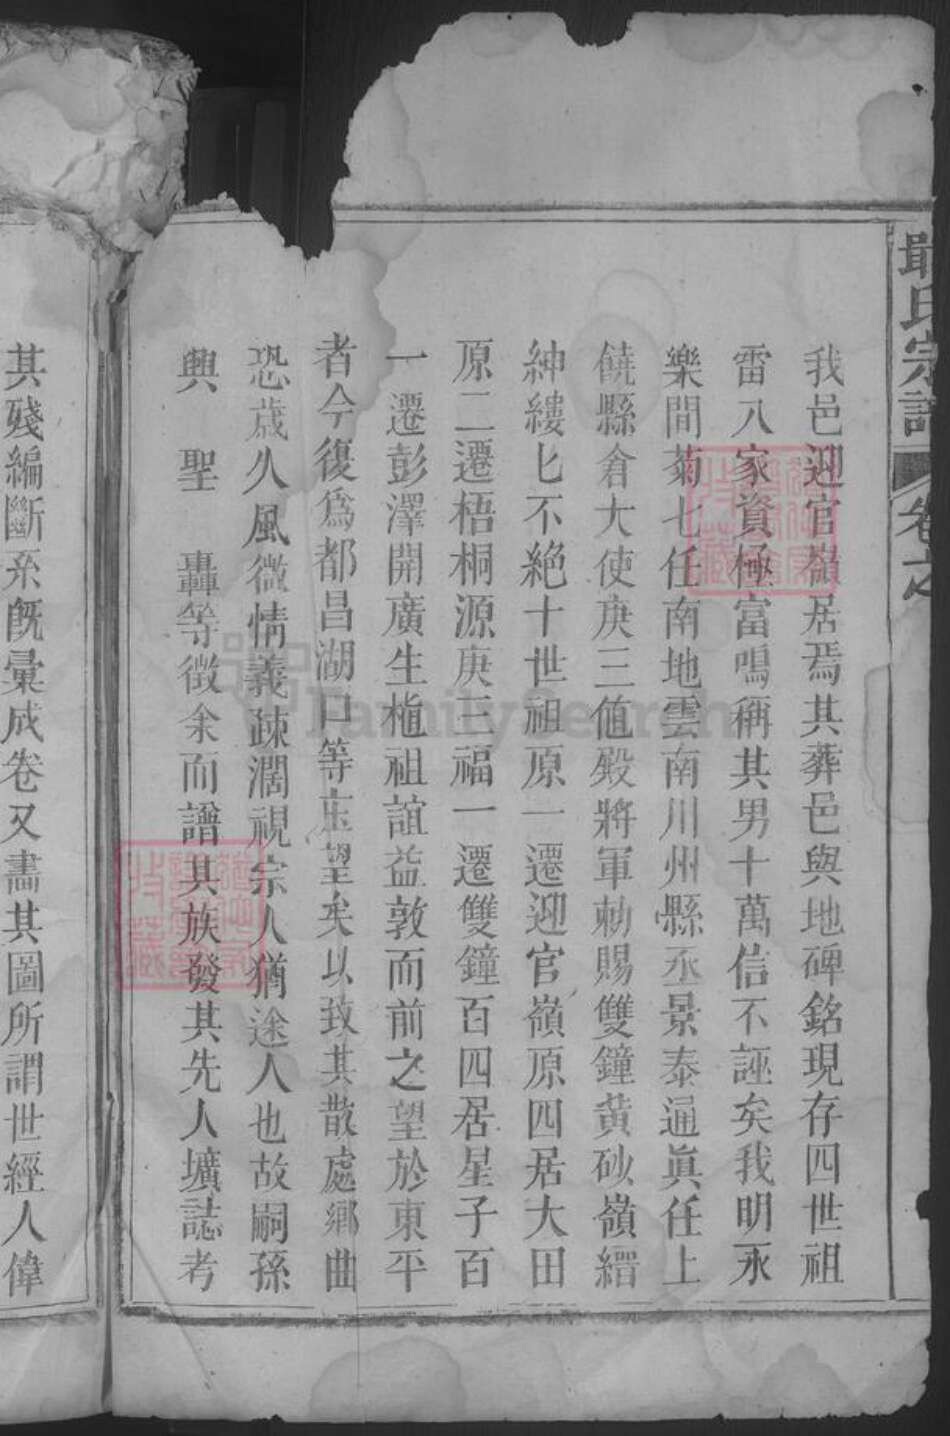 氏宗譜 卷之
我邑迎官嶺居焉其葬邑與地碑銘現存四世祖
雷八家資極富鳴稱其男十萬信不誣矣我明永
樂間菊七任南地雲南川州縣丞景泰通眞任上
饒縣倉大使庚三値殿將軍勅賜雙鐘黃砂嶺縉
紳縷匕不絶十世祖原一遷迎官嶺原四居大田
原二遷梧桐源庚三福一遷雙鐘百四居星子百
一遷彭澤開廣生植祖誼益敦而前之望於東平
者今復爲都昌湖口等望矣以致其散處鄉曲
恐歲久風微情義疎濶視宗人猶途人也故嗣孫
興 聖 轟等徵余而譜其族發其先人壙誌考
其殘編斷系旣彙成卷又畵其圖所謂世經人偉
FamilySearch